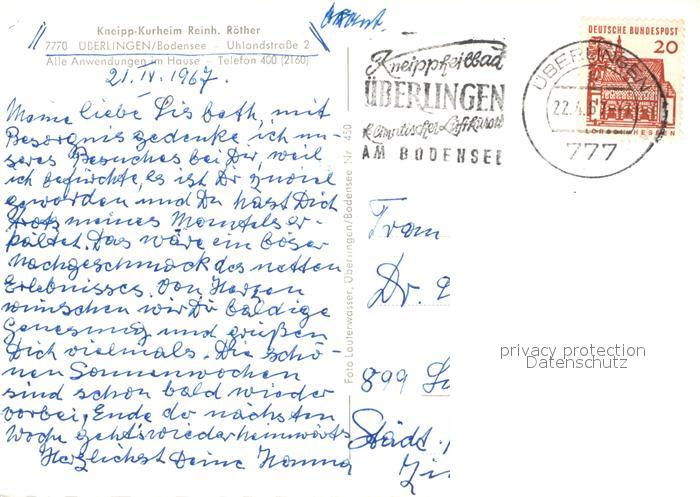 Kneipp-Kurheim Reinh. Röther
7770 ÜBERLINGEN/Bodensee - Uhlandstraße 2
Alle Anwendungen im Hause - Telefon 400 (2160)
21. IV. 1967.
Meine liebe Lisbeth, mit
Besorgnis gedenke ich un-
seres Besuches bei Dir, weil
ich befürchte, es ist Dir zuviel
geworden und Du hast Dich
trotz meines Mantels er-
kältet. Das wäre ein böser
Nachgeschmack des netten
Erlebnisses. Von Herzen
wünschen wir Dir baldige
Genesung und grüßen
Dich vielmals. Die schö-
nen Sonnenwochen
sind schon bald wieder
vorbei, Ende der nächsten
Woche geht's wieder heimwärts
Herzlichst Deine Hanna
Foto Lauterwasser, Überlingen/Bodensee Nr. 450
Kneippheilbad
ÜBERLINGEN
Klimatischer Luftkurort
AM BODENSEE
ÜBERLINGEN
22.4.6
777
DEUTSCHE BUNDESPOST
20
LORSCH/HESSEN
Frau
Dr.
899
Städt.
privacy protection
Datenschutz